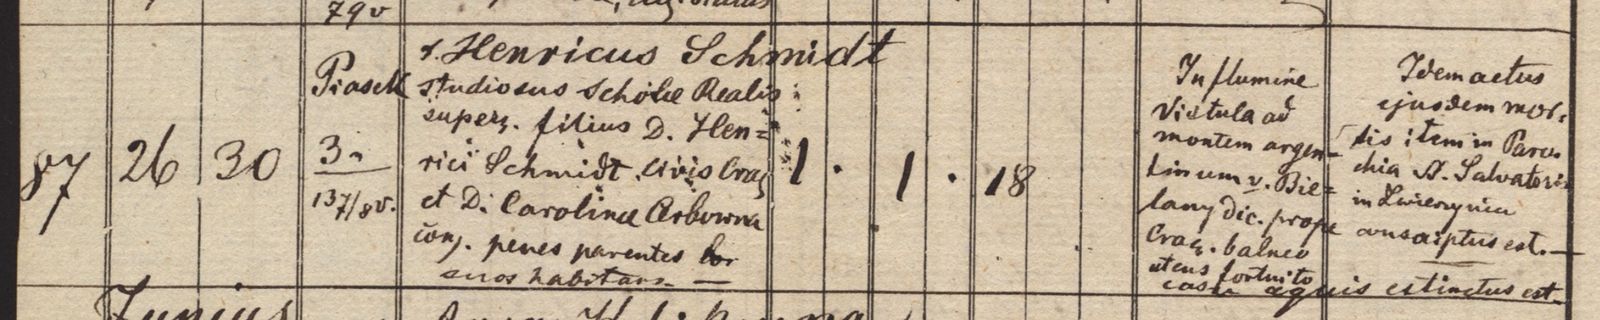 79v
87 26 30
Piasek
3a
137/8v.
†. Henricus Schmidt
studiosus Scholæ Realis
super. filius D. Hen=
rici Schmidt civis Crac
et D. Carolinæ
conj. penes parentes
suos habitans. —
1 . 1 . 18
In flumine
Vistula ad
montem argen=
tinum v. Bie=
lany dic. prope
Crac. balneo
utens fortuito
casu aquis estinctus est.
Idem actus
ejusdem mor=
tis item in Paro=
chia S. Salvatoris
in Zwierzynia
conscriptus est. —
Junius